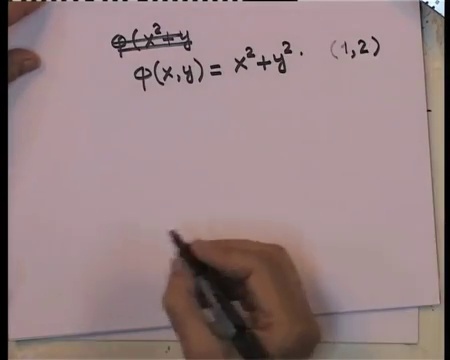 φ(x²+y
φ(x,y) = x²+y². (1,2)